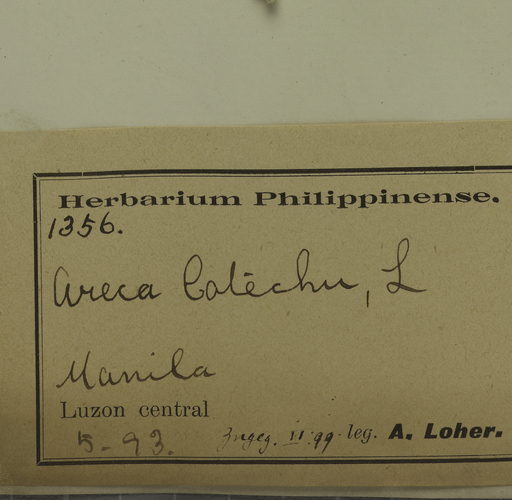 Herbarium Philippinense.
1356.
Areca Catechu, L
Manila
Luzon central
5-93. Ingeg. II.99. leg. A. Loher.